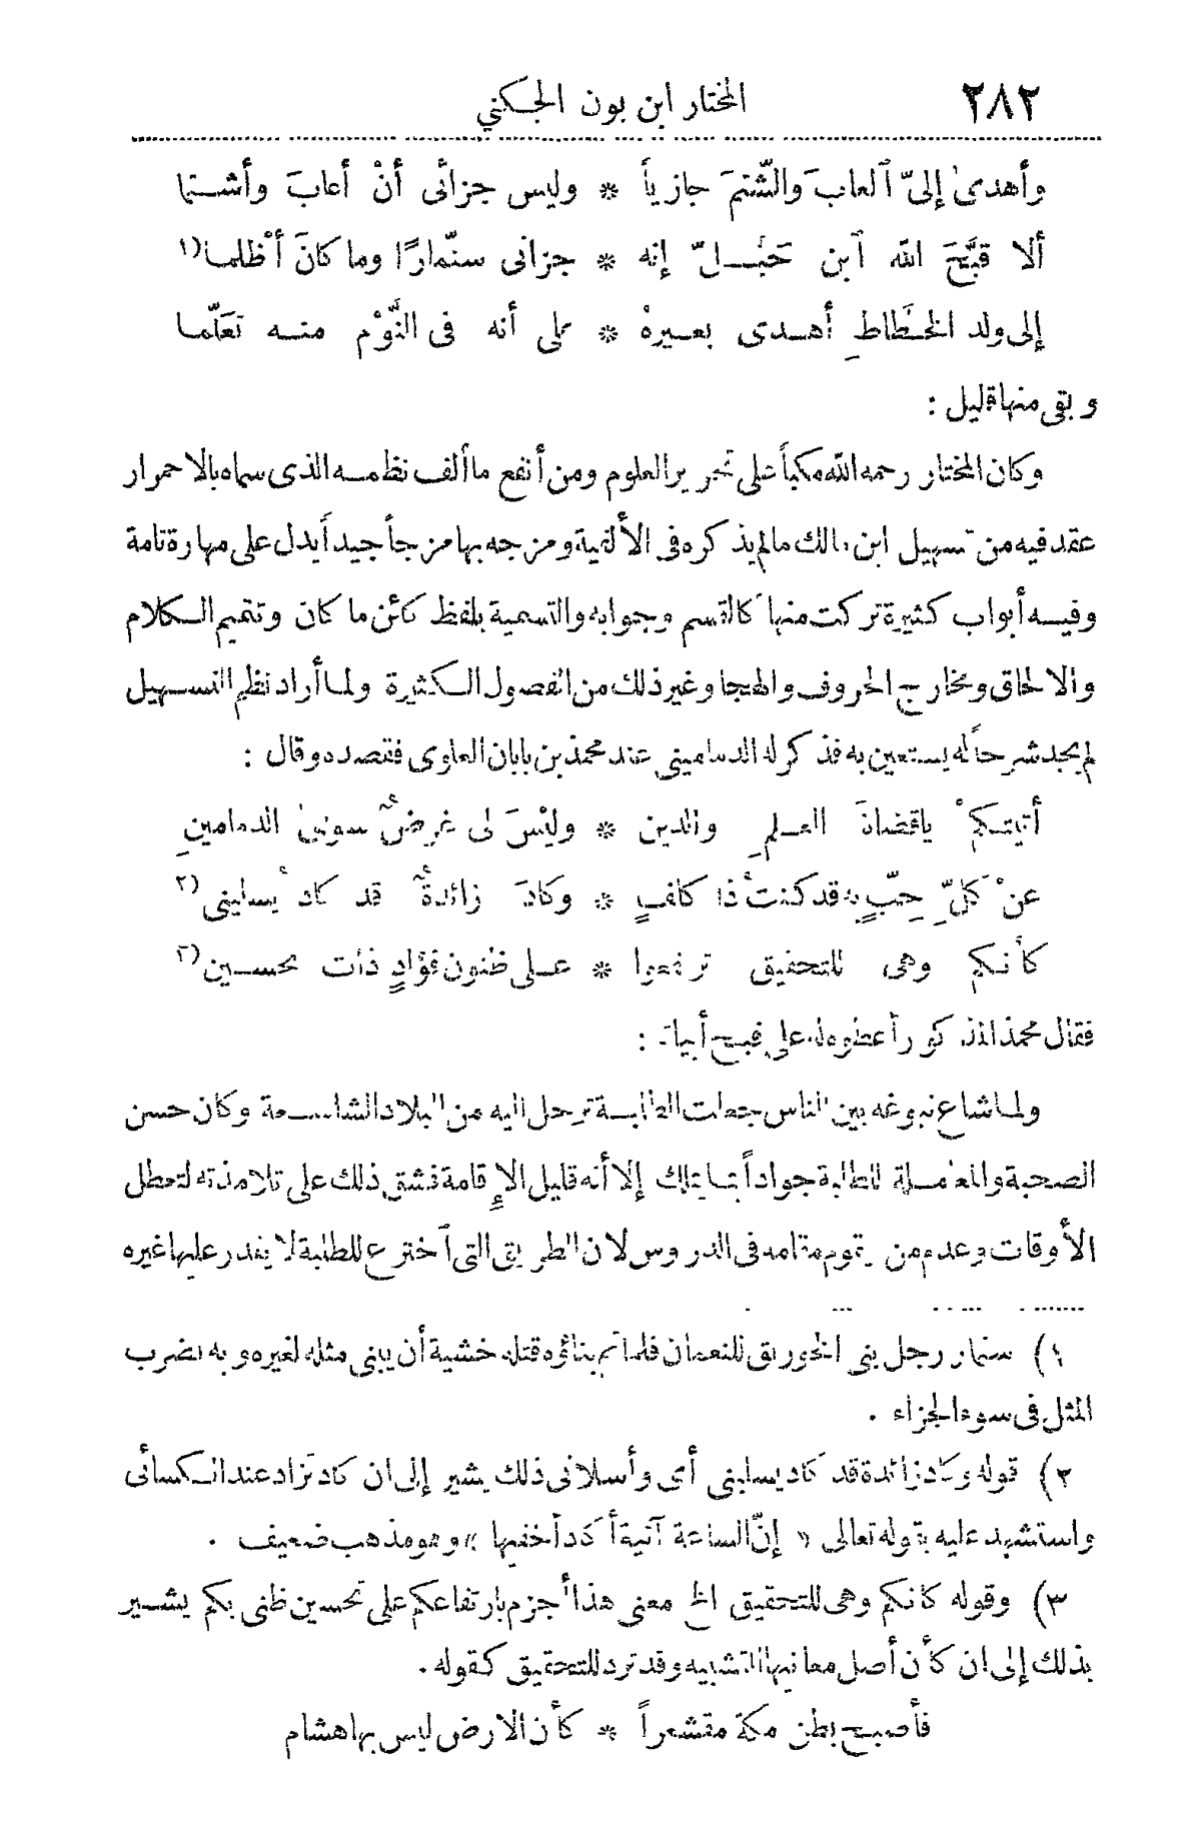 ٢٨٢ المختار ابن بون الجكني
وأهدىٰ إلىّ ٱلعابَ والشّتمَ جازياً * وليس جزائى أنْ أعابَ وأشتما
ألا قبَّحَ الله ٱبن حَبُلّ إنه * جزانى سنّمارًا وما كانَ أظلما(١
إلى ولد الخطَّاطِ أهدى بعيرهْ * على أنه فى النَّوْم منه تعَلّما
وبقى منها قليل :
وكان المختار رحمه الله مكباً على تحرير العلوم ومن أنفع ما ألف نظمه الذى سماه بالاحمرار
عقد فيه من تسهيل ابن مالك ما لم يذكره فى الألفية ومزجه بها مزجاً جيداً يدل على مهارة تامة
وفيه أبواب كثيرة تركت منها كالقسم وجوابه والتسمية بلفظ كائن ما كان وتتميم الكلام
والالحاق ومخارج الحروف والهجا وغير ذلك من الفصول الكثيرة ولما أراد نظم التسهيل
لم يجد شرحاً له يستعين به فذكر له الدمامينى عند محمذ بن بابان العلوى فقصده وقال :
أتيتكمْ ياقضاةَ العلمِ والدين * وليْسَ لى غرضٌ سوىٰ الدمامينِ
عنْ كلِّ حِبّ بهِ قد كنتُ ذا كلفٍ * وكادَ زائدةٌ قد كاد يُسلينى(٢
كأنكم وهى للتحقيق ترفعوا * على ظنون فؤادٍ ذات تحسين(٣
فقال محمذ المذكور أعطوه له على قبح أبياته :
ولما شاع نبوغه بين الناس جعلت الطلبة ترحل اليه من البلاد الشاسعة وكان حسن
الصحبة والمعاملة للطلبة جواداً بما يملك إلا أنه قليل الإقامة فشق ذلك على تلامذته لتعطل
الأوقات وعدم من يقوم مقامه فى الدروس لان الطريق التى ٱخترع للطلبة لا يقدر عليها غيره
١) سنمار رجل بنى الخورنق للنعمان فلما تم بناؤه قتله خشية أن يبنى مثله لغيره وبه يضرب
المثل فى سوء الجزاء .
٢) قوله وكاد زائدة قد كاد يسلينى أى وأسلانى ذلك يشير إلى ان كاد تزاد عند الكسائى
واستشهد عليه بقوله تعالى « إنّ الساعة آتية أكاد أخفيها » وهو مذهب ضعيف .
٣) وقوله كانكم وهى للتحقيق الخ معنى هذا أجزم بارتفاعكم على تحسين ظنى بكم يشير
بذلك إلى ان كأن أصل معانيها التشبيه وقد ترد للتحقيق كقوله .
فأصبح بطن مكة مقشعراً * كأن الارض ليس بها هشام